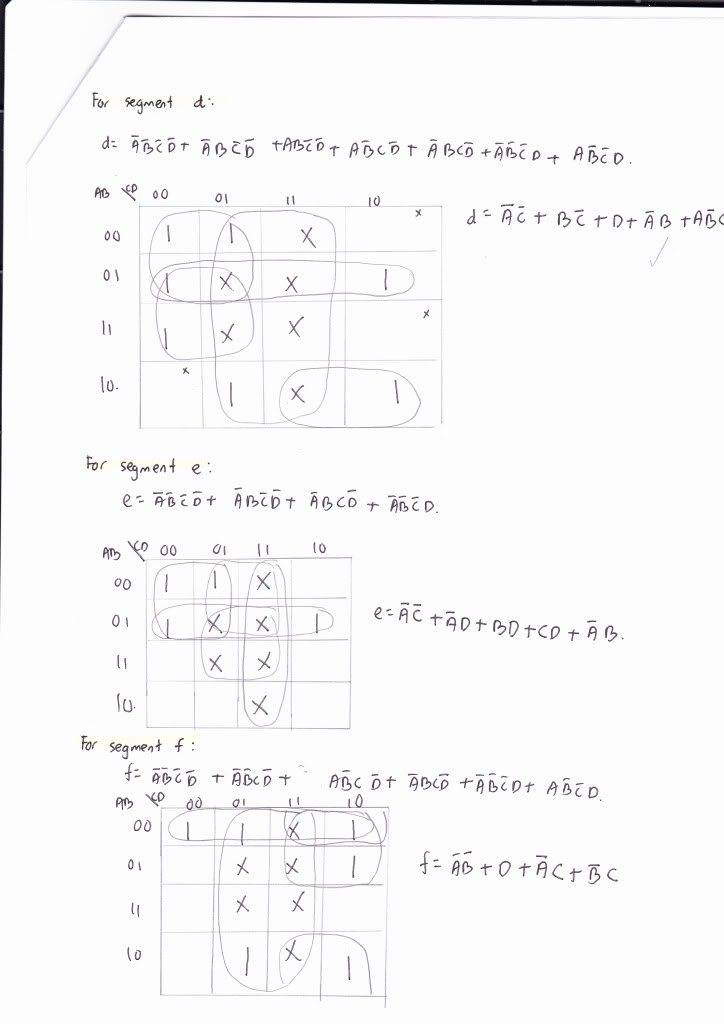 For segment d:
d= A̅B̅C̅D̅ + A̅BC̅D̅ + ABC̅D̅ + AB̅CD̅ + A̅BCD̅ + A̅B̅C̅D + AB̅C̅D.
AB \ CD 00 01 11 10 x
00 1 1 X
01 1 X X 1
11 1 X X x
10. x 1 X 1
d = A̅C̅ + BC̅ + D + A̅B + AB̅C
✓
For segment e:
e= A̅B̅C̅D̅ + A̅BC̅D̅ + A̅BCD̅ + A̅B̅C̅D.
AB \ CD 00 01 11 10
00 1 1 X
01 1 X X 1
11 X X
10. X
e= A̅C̅ + A̅D + BD + CD + A̅B.
For segment f:
f= A̅B̅C̅D̅ + A̅B̅CD̅ + AB̅CD̅ + A̅BCD̅ + A̅B̅C̅D + AB̅C̅D.
AB \ CD 00 01 11 10
00 1 1 X 1
01 X X 1
11 X X
10 1 X 1
f= A̅B̅ + D + A̅C + B̅C